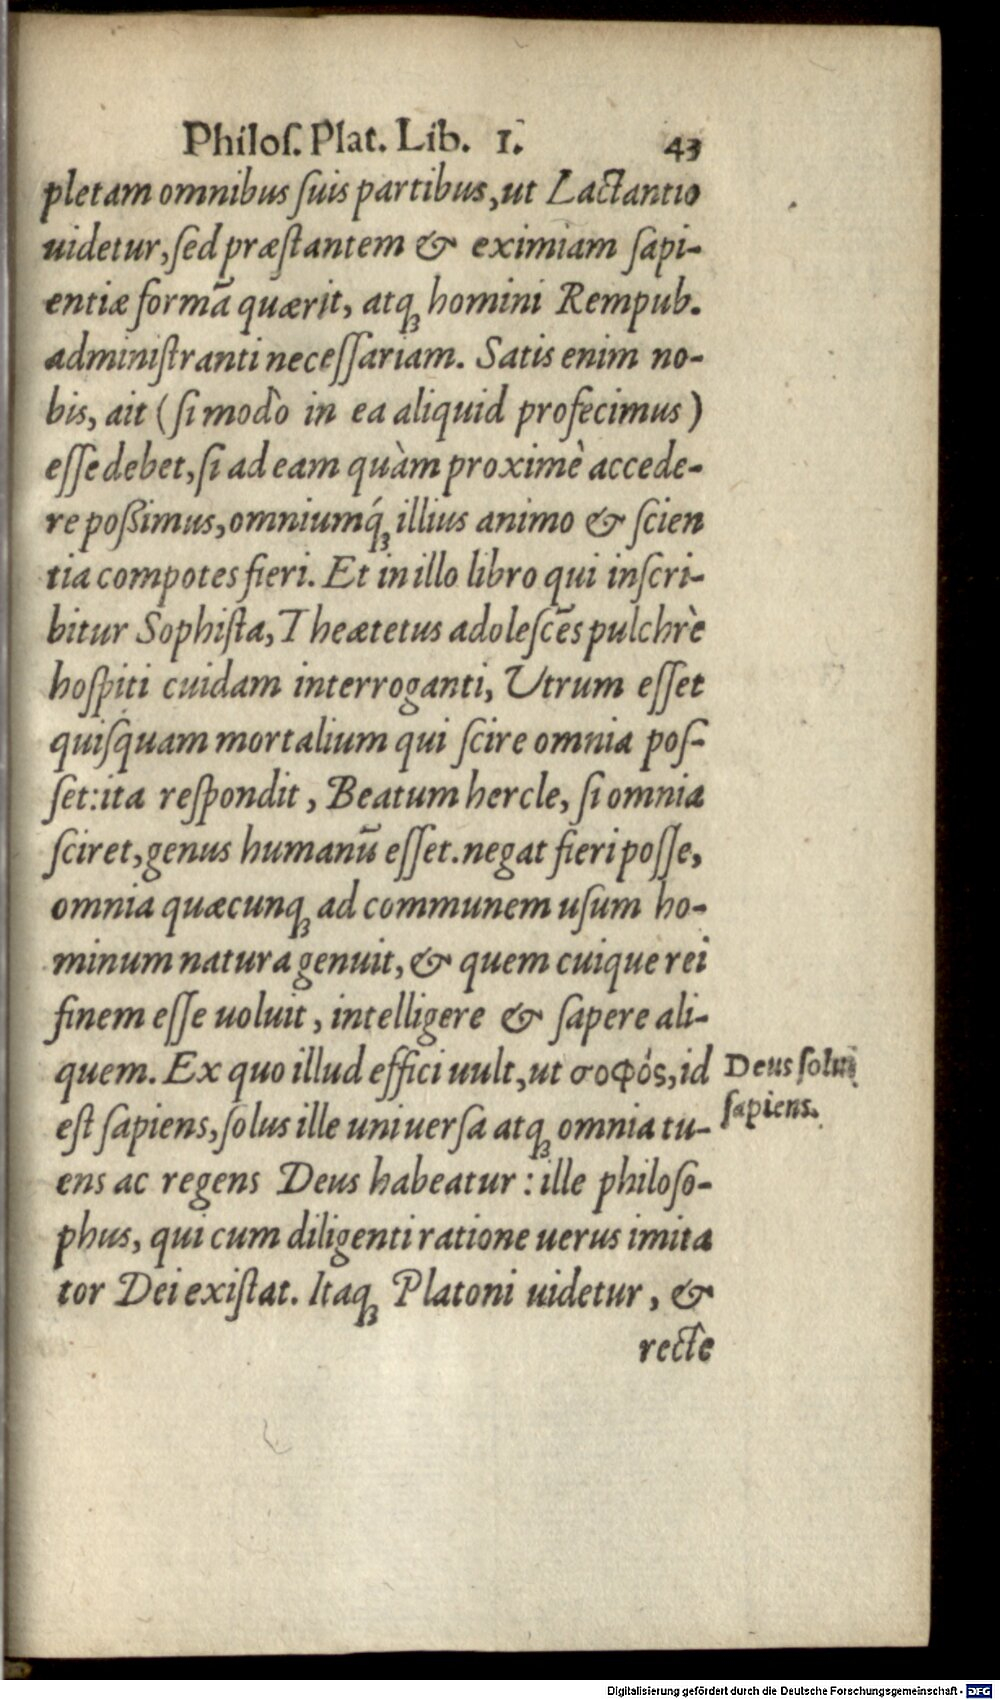 Philoſ. Plat. Lib. 1. 43
pletam omnibus ſuis partibus, ut Lactantio
uidetur, ſed præſtantem & eximiam ſapi-
entiæ formā quærit, atq; homini Rempub.
adminiſtranti neceſſariam. Satis enim no-
bis, ait (ſi modò in ea aliquid profecimus)
eſſe debet, ſi ad eam quàm proximè accede-
re poßimus, omniumq́; illius animo & ſcien
tia compotes fieri. Et in illo libro qui inſcri-
bitur Sophiſta, Theætetus adoleſcēs pulchrè
hoſpiti cuidam interroganti, Utrum eſſet
quiſquam mortalium qui ſcire omnia poſ-
ſet: ita reſpondit, Beatum hercle, ſi omnia
ſciret, genus humanū eſſet. negat fieri poſſe,
omnia quæcunq; ad communem uſum ho-
minum natura genuit, & quem cuique rei
finem eſſe uoluit, intelligere & ſapere ali-
quem. Ex quo illud effici uult, ut σοφός, id
eſt ſapiens, ſolus ille uniuerſa atq; omnia tu-
ens ac regens Deus habeatur: ille philoſo-
phus, qui cum diligenti ratione uerus imita
tor Dei exiſtat. Itaq; Platoni uidetur, &
recte
Deus ſolus
ſapiens.
Digitalisierung gefördert durch die Deutsche Forschungsgemeinschaft - DFG